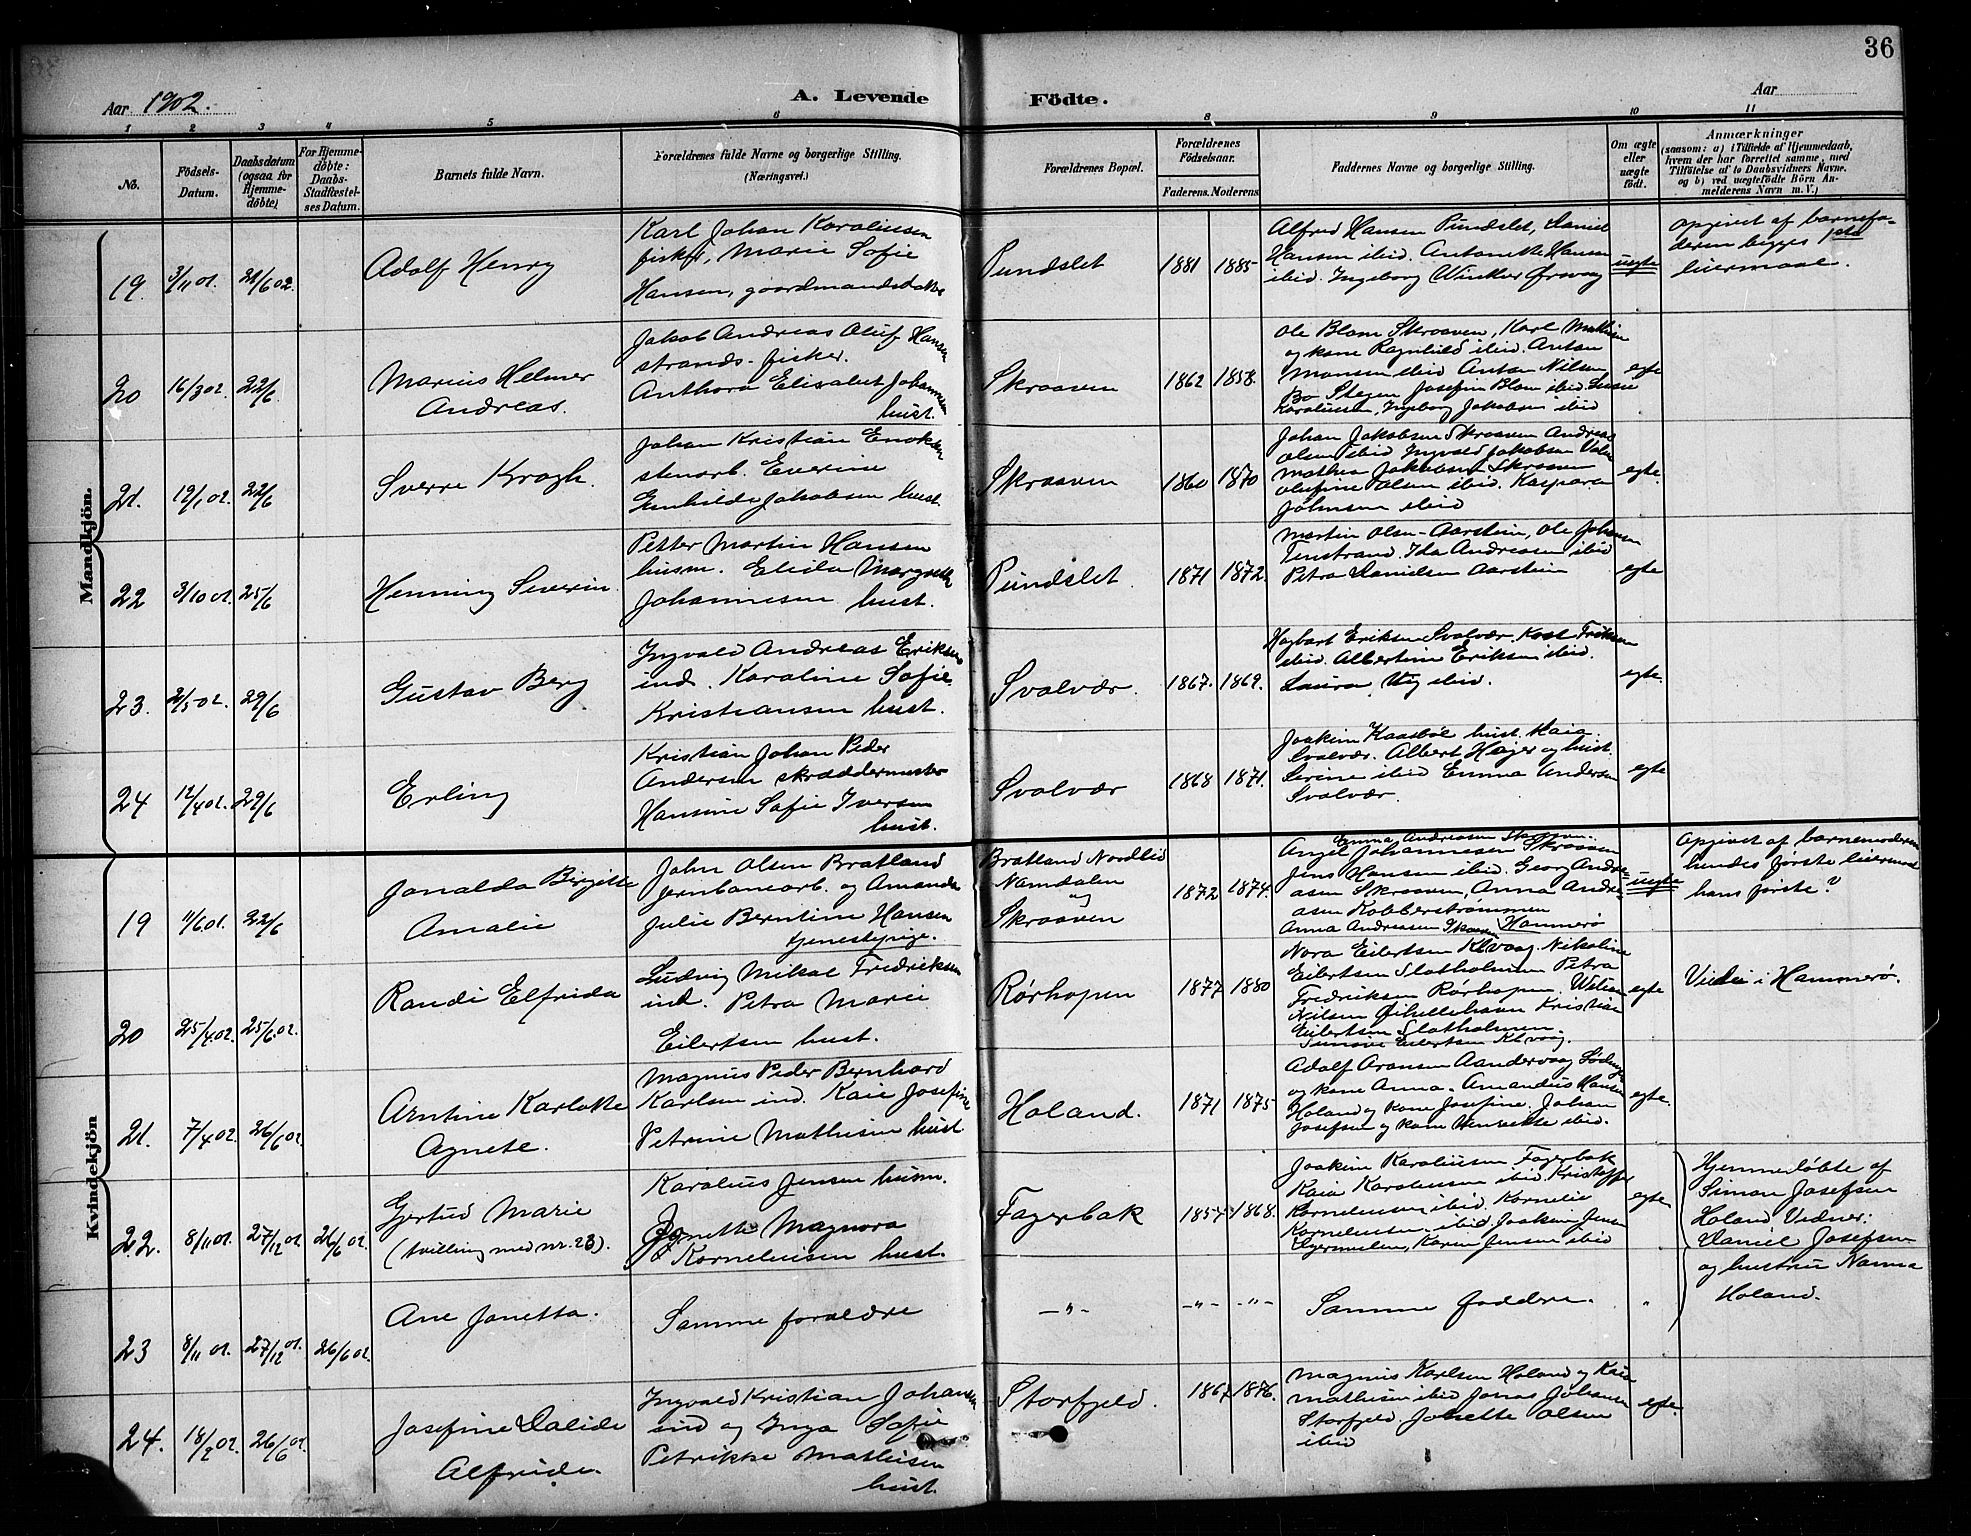 36
Aar 1902.
A. Levende Födte.
Aar
1 2 3 4 5 6 8 9 10 11
No.
Födsels-Datum.
Daabsdatum (ogsaa for Hjemme-döbte)
For Hjemme-döbte: Daabs-Stadfæstel-ses Datum.
Barnets fulde Navn.
Forældrenes fulde Navne og borgerlige Stilling.
(Næringsvei.)
Forældrenes Bopæl.
Forældrenes Födselsaar.
Faderens. Moderens.
Faddernes Navne og borgerlige Stilling.
Om ægte eller uægte födt.
Anmærkninger
(saasom: a) i Tilfælde af Hjemmedaab,
hvem der har forrettet samme, med
Tilföielse af to Daabsvidners Navne.
og b) ved uægtefödte Börn An-
melderens Navn m. V.)
Mandkjön.
19. 3/11 01. 21/6 02.
Adolf Henry
Karl Johan Karoliusen
fisker, Marie Sofie
Hansen, gaardmandsdatter
Pundslet
1881 1885
Alfred Hansen Pundslet, Daniel
Hansen ibid. Antonette Hansen
ibid. Ingeborg Winther Ørsvaag
uegte
opgivet af barnefa-
deren begges 1ste
leiermaal.
20 16/3 02. 22/6.
Marius Helmer
Andreas.
Jakob Andreas Oluf Hansen
strands-fisker.
Anthora Elisabet Johannesen
hust.
Skraaven
1862 1858.
Ole Blom Skraaven, Karl Mathisen
og kone Ragnhild ibid. Anton
Monsen ibid Anton Nilsen
Bo Stegen Josefine Blom ibid.
Karoliussen, Ingeborg Jakobsen ibid
egte
21. 19/1 02. 22/6
Sverre Krogh.
Johan Kristian Enoksen
stenarb. Everine
Gunhilda Jakobsen hust.
Skraaven
1860 1870
Johan Jakobsen Skraaven Andreas
Olsen ibid Ingvald Jakobsen
Mathea Jakobsen Skraaven
Olufine Olsen ibid. Kaspara
Johnsen ibid
egte.
22 3/10 01. 25/6
Henning Severin.
Petter Martin Hansen
husm. Elida Margrethe
Johannesen hust.
Pundslet.
1871 1872.
Martin Olsen Aarstein, Ole Johansen
Tenstrand. Ida Andreasen ibid
Petra Danielsen Aarstein
egte
23. 2/5 02. 29/6
Gustav Berg
Ingvald Andreas Eriksen
ind. Karoline Sofie
Kristiansen hust.
Svolvær.
1867. 1869.
Hagbart Eriksen Svolvær.
ibid. Albertine Eriksen ibid.
Laura ibid.
egte.
24 12/4 02. 29/6
Erling
Kristian Johan Peder
Andersen skræddermester
Hansine Sofie Iversen
hust.
Svolvær
1868 1871.
Joakim Kaasböl hust. Kaia
Svolvær. Albert Hejer og hust.
Serine ibid Emma Andersen
Svolvær.
egte
Kvindekjön
19 11/6 01. 22/6
Jonalda Birgitte
Amalie
John Olsen Bratland
jernbanearb. og Amanda
Julie Berntine Hansen
tjenestepige.
Bratland Nordlid
Namdalen
og
Skraaven
1872 1874.
Emma Andreasen Skraaven.
Angel Johannesen Skraaven
Jens Hansen ibid. Georg Andre-
asen Skraaven, Anna Andre-
asen Kobberstrømmen
Hammerø
Anna Andreasen Skraaven
uegte
Opgivet af barnemoderen
hendes første leiermaal
hans første?
20 25/4 02. 25/6 02.
Randi Elfrida
Ludvig Mikal Fredriksen
ind. Petra Marie
Eilertsen hust.
Rørhopen
1877 1880
Nora Eilertsen Klvaag. Nikoline
Eilertsen Slotholmen Petra
Fredriksen Rørhopen.
Nilsen Øihellehavn Kristian
Eilertsen Slotholmen.
Eilertsen Klvaag.
egte
Viede i Hammerø.
21. 7/4 02. 26/6 02.
Arntine Karlotte
Agnete.
Magnus Peder Bernhard
Karlsen ind. Kaie Josefine
Petrine Mathisen hust
Holand.
1871 1875
Adolf Aronsen Aandervaag
og kone Anna. Amandus Hansen
Holand og kone Josefine. Johan
Josefsen og kone Henrikke ibid.
egte.
22. 8/11 01. 27/12 01. 26/6 02.
Gjertud Marie
(tvilling med nr. 23).
Karolius Jensen husm.
Jonette Magnora
Korneliusen hust.
Fagerbak
1857 1868.
Joakim Karoliusen Fagerbak
Kaia Karoliusen ibid. Kristoffer
Korneliusen ibid. Kornelie
Korneliusen ibid. Joakim Jensen
Karen Jensen ibid
egte
Hjemmedøbte af
Simon Josefsen
Holand Vidner:
Daniel Josefsen
og hustru Nanna
Holand.
23 8/11 01. 27/12 01. 26/6 02.
Ane Janetta.
Samme forældre
—"— —"— —"—
Samme faddere.
"
24. 18/2 02. 26/6 02.
Josefine Dalide
Alfride.
Ingvald Kristian Johansen
ind og Inga Sofie
Petrikke Mathisen
hust.
Storfjeld.
1867 1876.
Magnus Karlsen Holand og Kaia
Mathisen ibid Jonas Johansen
Storfjeld. Jonette Olsen
ibid
egte.